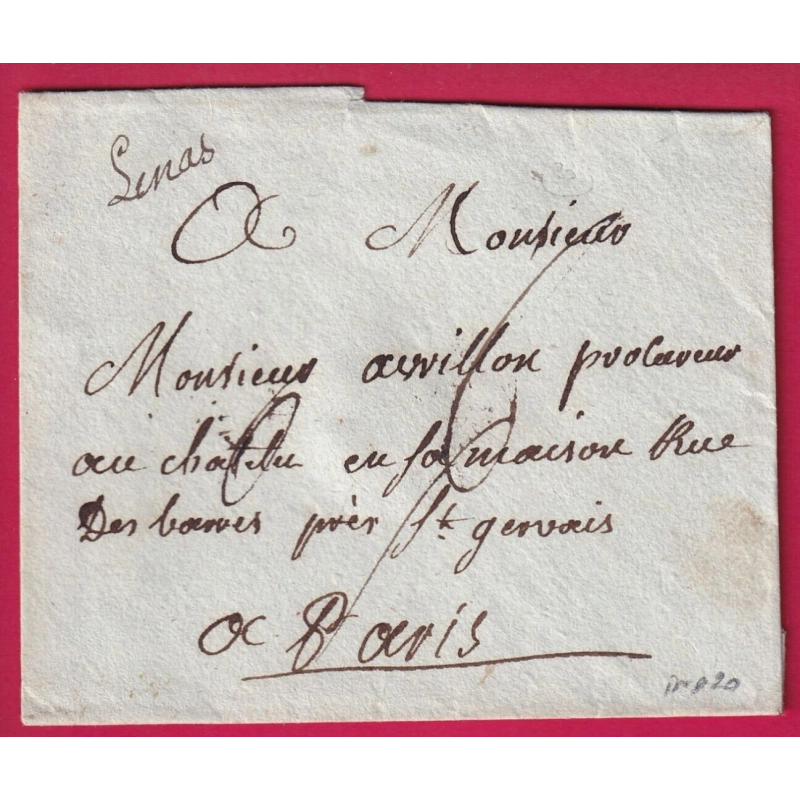 Linas
A Monsieur
Monsieur avrillon procureur
au châtelet en sa maison Rue
Des barres près St gervais
a Paris